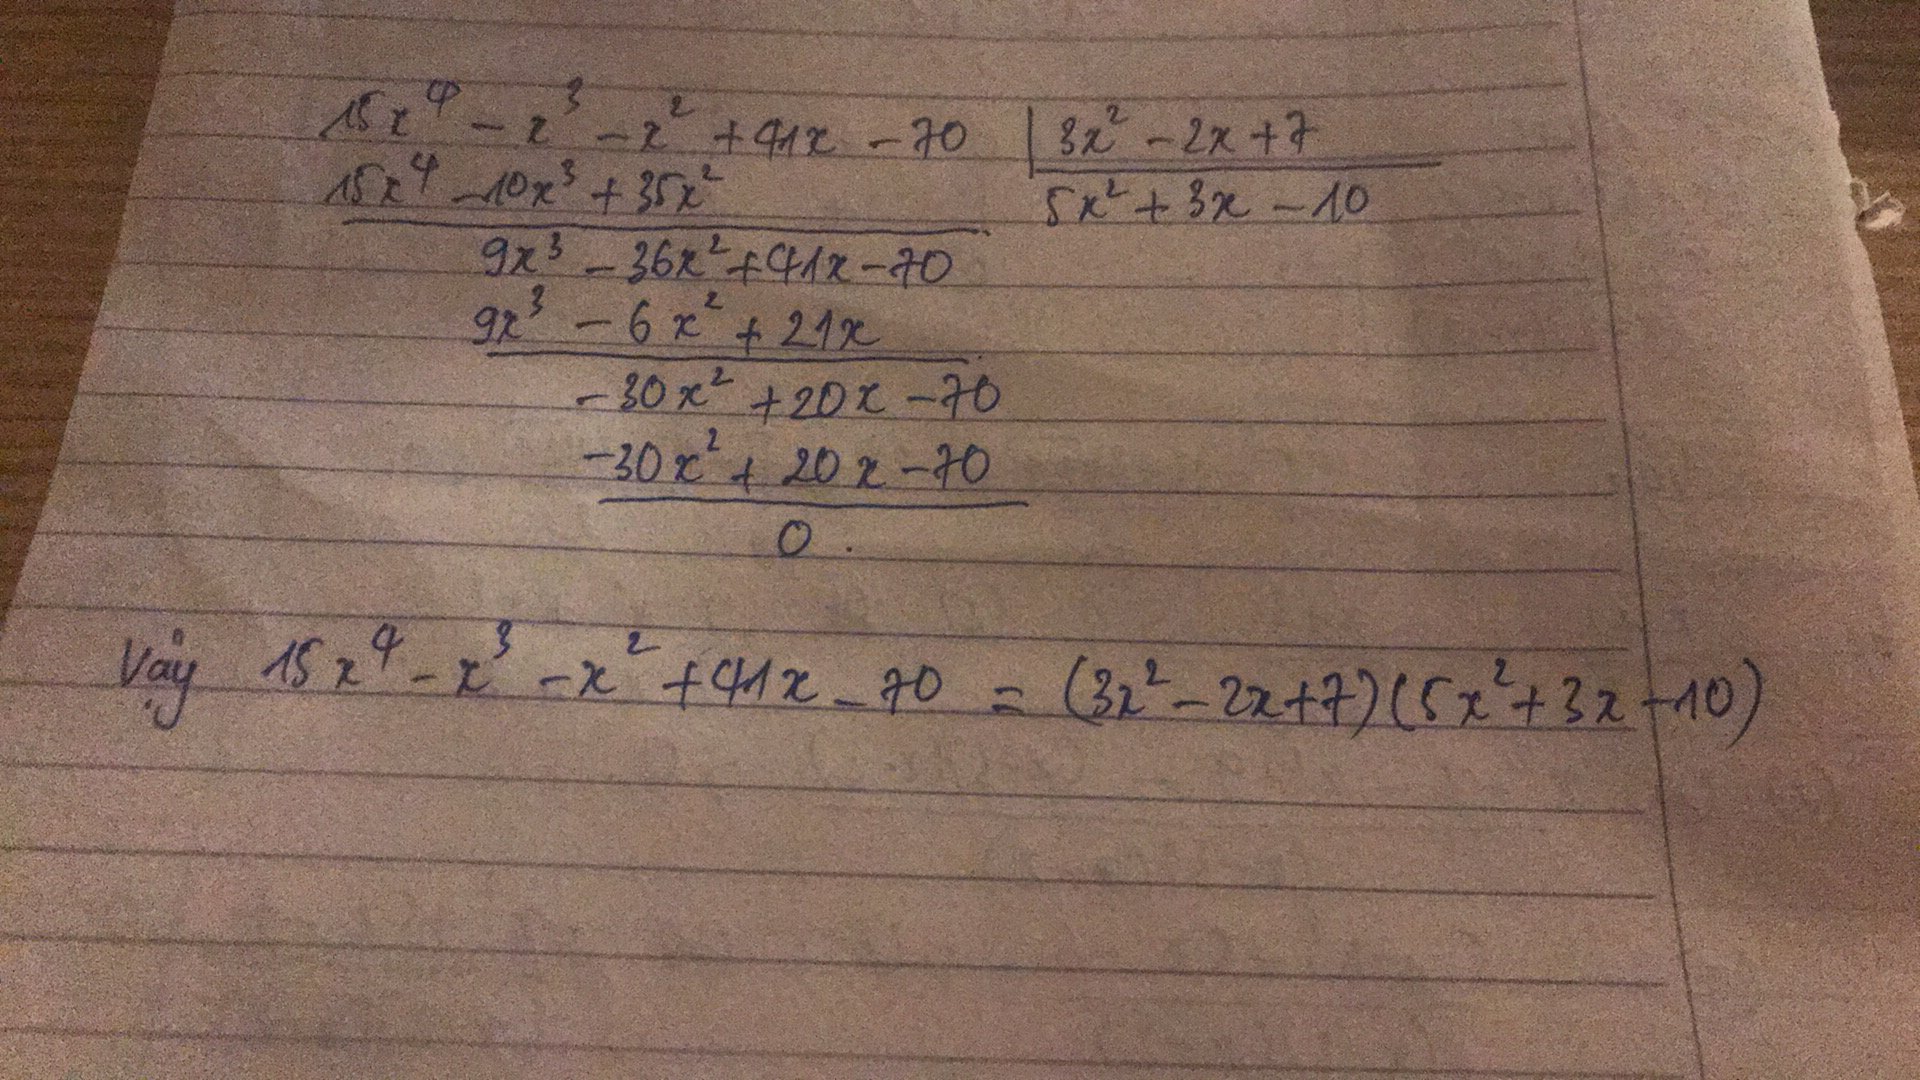 15x⁴ - x³ - x² + 41x - 70 | 3x² - 2x + 7
15x⁴ - 10x³ + 35x² 5x² + 3x - 10
9x³ - 36x² + 41x - 70
9x³ - 6x² + 21x
- 30x² + 20x - 70
- 30x² + 20x - 70
0 .
Vậy 15x⁴ - x³ - x² + 41x - 70 = (3x² - 2x + 7)(5x² + 3x - 10)